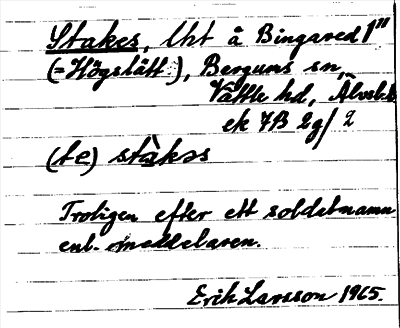 Stakes, lht å Bingared 1"
(= Högslätt), Bergums sn,
Vättle hd, Älvsb.
ek 7B 2g/2
(te) stàkəs
Troligen efter ett soldatnamn
enl. meddelaren.
Erik Larsson 1965.